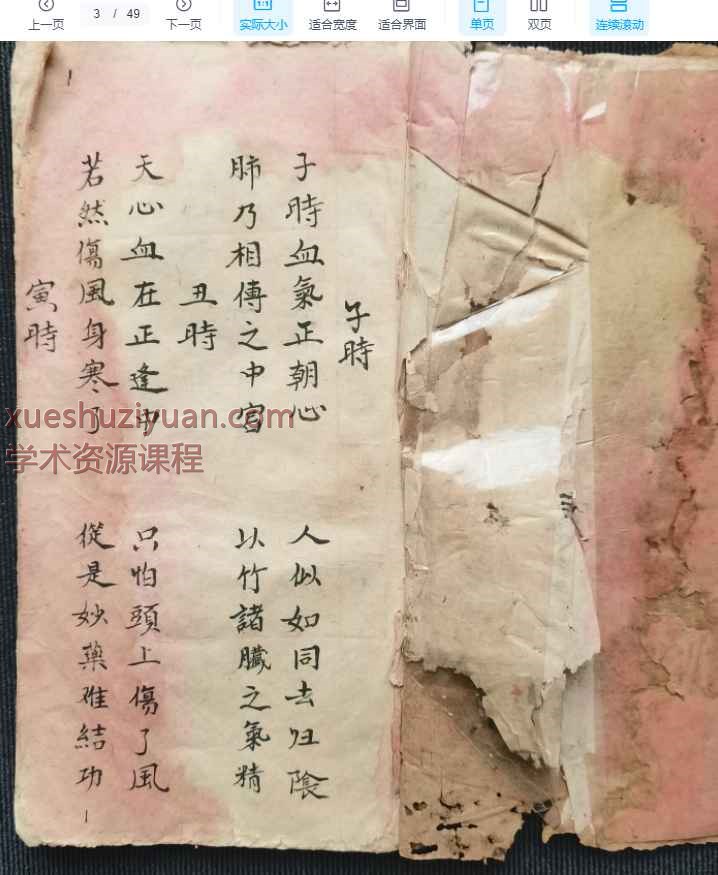 上一页
3 / 49
下一页
实际大小
适合宽度
适合界面
单页
双页
连续滚动
子時
子時血氣正朝心
人似如同去归陰
肺乃相傳之中宮
以竹諸臟之氣精
丑時
天心血在正逢中
只怕頭上傷了風
若然傷風身寒了
從是妙藥难結功
寅時
xueshuziyuan.com
学术资源课程